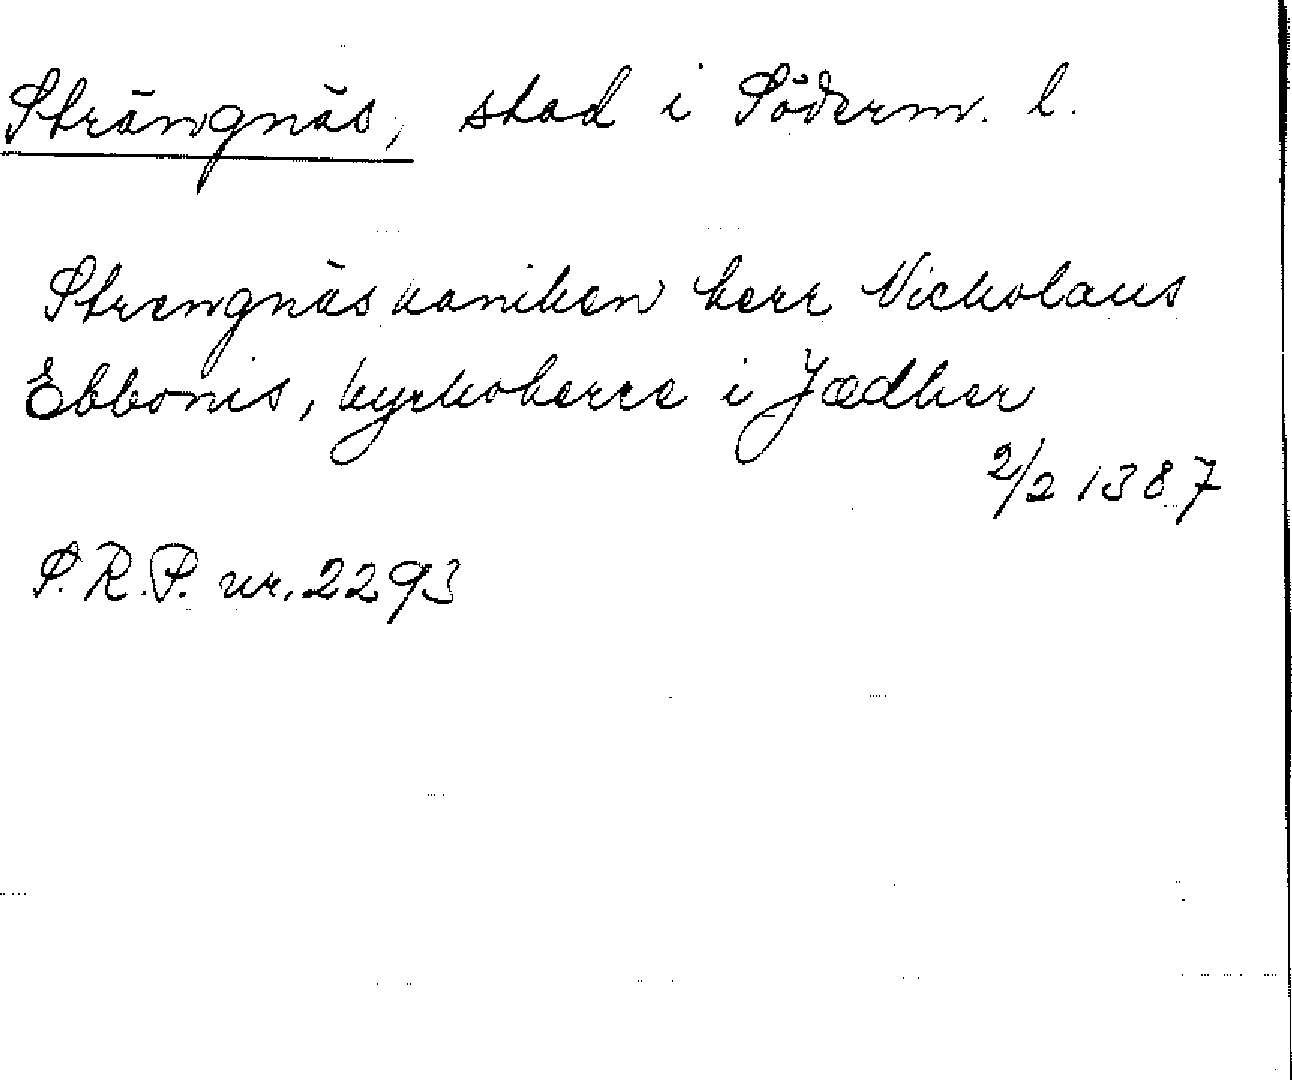 Strängnäs, stad i Söderm. l.
Strengnäskaniken herr Nickolaus
Ebbonis, kyrkoherre i Jædher
2/2 1387
S.R.P. nr. 2293